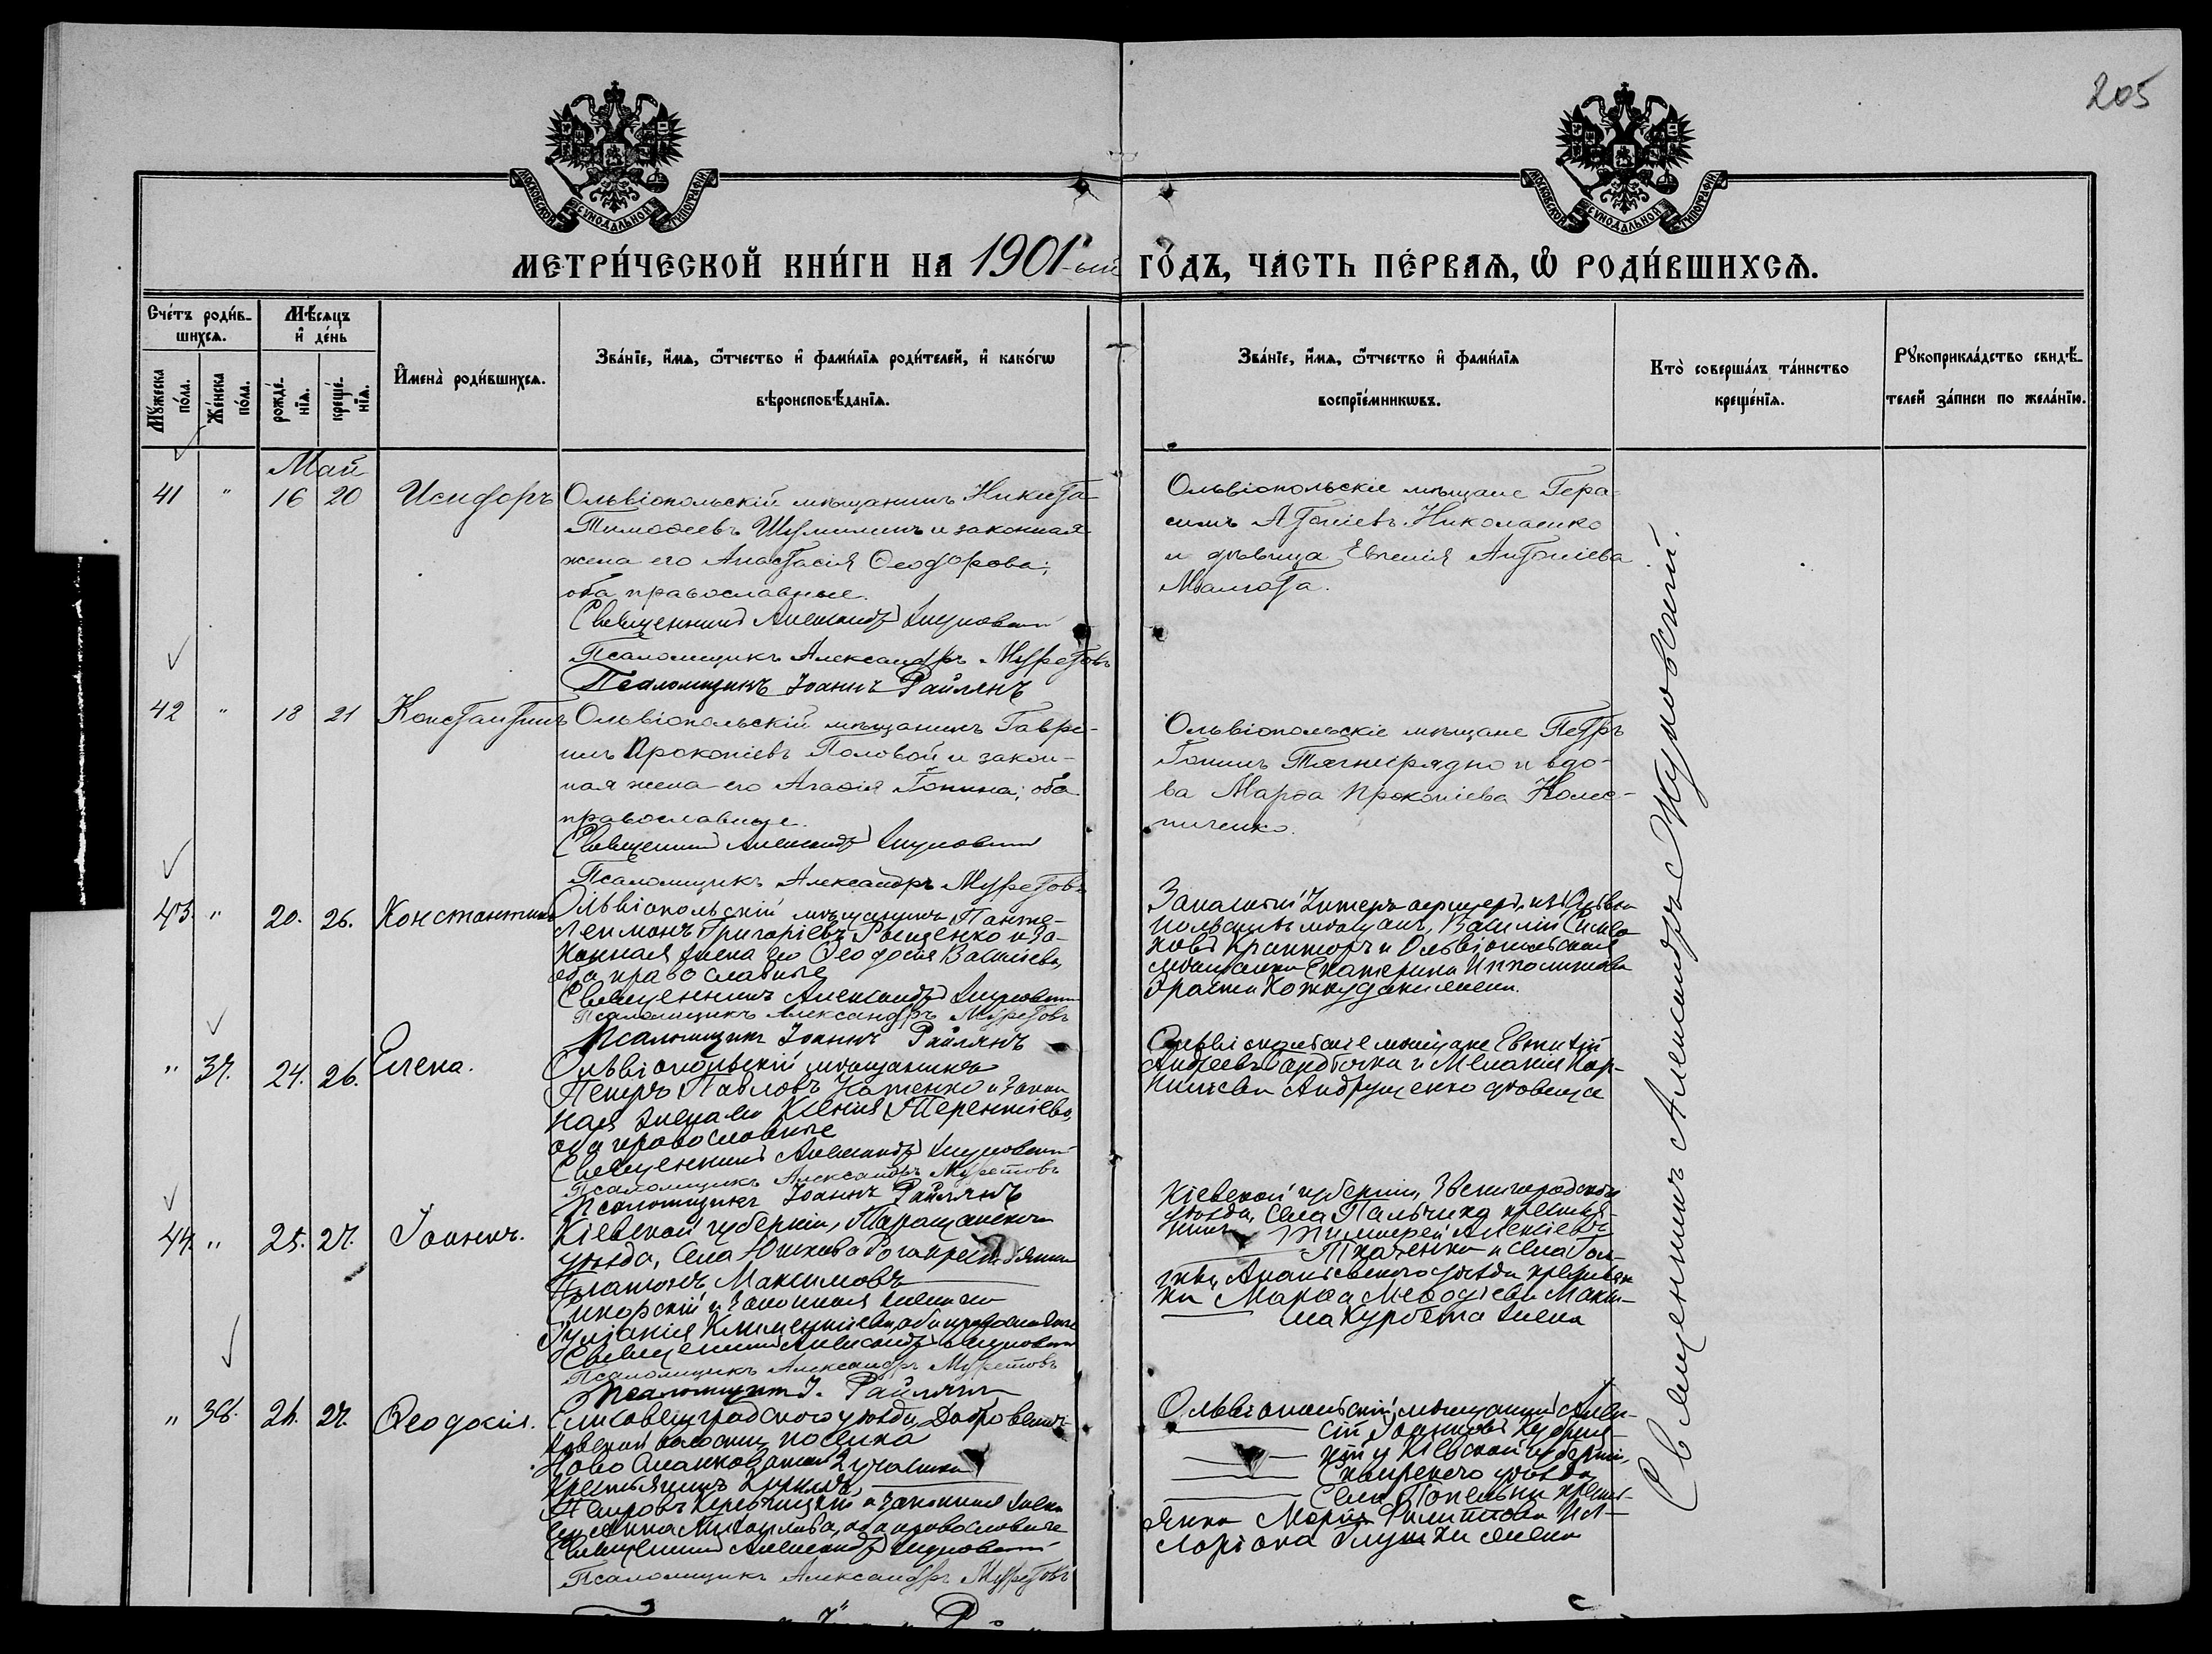 205
МОСКОВСКОЙ СѴНОДАЛЬНОЙ ТИПОГРАФІИ
МОСКОВСКОЙ СѴНОДАЛЬНОЙ ТИПОГРАФІИ
МЕТРИ́ЧЕСКОЙ КНИ́ГИ НА 1901-ый ГО́ДЪ, ЧА́СТЬ ПЕ́РВАѦ, Ѽ РОДИ́ВШИХСѦ.
Сче́тъ роди́в-
шихсѧ.
Мꙋ́жеска по́ла.
Же́нска по́ла.
Мѣ́сѧцъ
и҆ де́нь
рожде́-
нїѧ.
креще́-
нїѧ.
И҆мена̀ роди́вшихсѧ.
Зва́нїе, и҆́мѧ, ѻ҆́тчество и҆ фами́лїѧ роди́телей, и҆ како́гѡ
вѣроисповѣ́данїѧ.
Зва́нїе, и҆́мѧ, ѻ҆́тчество и҆ фами́лїѧ
воспрїе́мникѡвъ.
Кто̀ соверша́лъ та́инство
креще́нїѧ.
Рꙋкоприкла́дство свидѣ́-
телей за́писи по жела́нїю.
Май
41 " 16 20 Исидоръ
Ольвіопольскій мѣщанинъ Никита
Тимофеевъ Шумилинъ и законная
жена его Анастасія Ѳеодорова;
оба православные.
Священникъ Александръ Жуковскій
Псаломщикъ Александръ Муретовъ
Псаломщикъ Іоаннъ Райлянъ
Ольвіопольскіе мѣщане Гера-
симъ Николаенко
и дѣвица Евгенія Антоніева
42 " 18 21 Константинъ
Ольвіопольскій мѣщанинъ Гаврі-
илъ Прокопіевъ Половой и закон-
ная жена его Агафія оба
православные.
Священникъ Александръ Жуковскій
Псаломщикъ Александръ Муретовъ
Ольвіопольскіе мѣщане Петръ
Тягнирядно и вдо-
ва Марѳа Прокопіева Колес-
ниченко.
43. " 20. 26. Константинъ
Ольвіопольскій мѣщанинъ Панте-
леимонъ Григоріевъ Рыщенко и за-
конная жена его Ѳеодосія Василіева,
оба православные
Священникъ Александръ Жуковскій
Псаломщикъ Александръ Муретовъ
Псаломщикъ Іоаннъ Райлянъ
Запасный Унтеръ-офицеръ, изъ Ольвіо-
польскихъ мѣщанъ, Василій
и Ольвіопольская
мѣщанка Екатерина Ипполитова
жена.
" 37. 24. 26. Елена.
Ольвіопольскій мѣщанинъ
Петръ Павловъ и закон
ная жена его Ксенія Терентіева,
оба православные
Священникъ Александръ Жуковскій
Псаломщикъ Александръ Муретовъ
Псаломщикъ Іоаннъ Райлянъ
Ольвіопольскіе мѣщане Евтихій
Андреевъ и Меланія Кор-
ниліева Андрущенко дѣвица
44. " 25. 27. Іоаннъ.
Кіевской губерніи, Таращанскаго
уѣзда, села Юшкова Рога крестьянинъ
Платонъ Максимовъ
Сикорскій и законная жена его
Іуліанія Климентіева, оба православные
Священникъ Александръ Жуковскій
Псаломщикъ Александръ Муретовъ
Псаломщикъ І. Райлянъ
Кіевской губерніи, Звенигородскаго
уѣзда, села Пальчика крестья-
нинъ Тимофей Алексіевъ
Ткаченко и села Гол-
ты, Ананьевскаго уѣзда крестьян
ка Марѳа Меѳодіева Макси-
ма Курбета жена
" 38. 26. 27. Ѳеодосія.
Елисаветградскаго уѣзда, Добровелич-
ковской волости, поселка
участка
крестьянинъ Кириллъ
Петровъ и законная жена
его Анна Михайлова, оба православные
Священникъ Александръ Жуковскій
Псаломщикъ Александръ Муретовъ
Ольвіопольскій мѣщанинъ Алек-
сій Іоанновъ
и Кіевской губерніи,
Сквирскаго уѣзда
села Попельни кресть-
янка Марія Филиппова Ил-
ларіона Глушки жена
Священникъ Александръ Жуковскій.